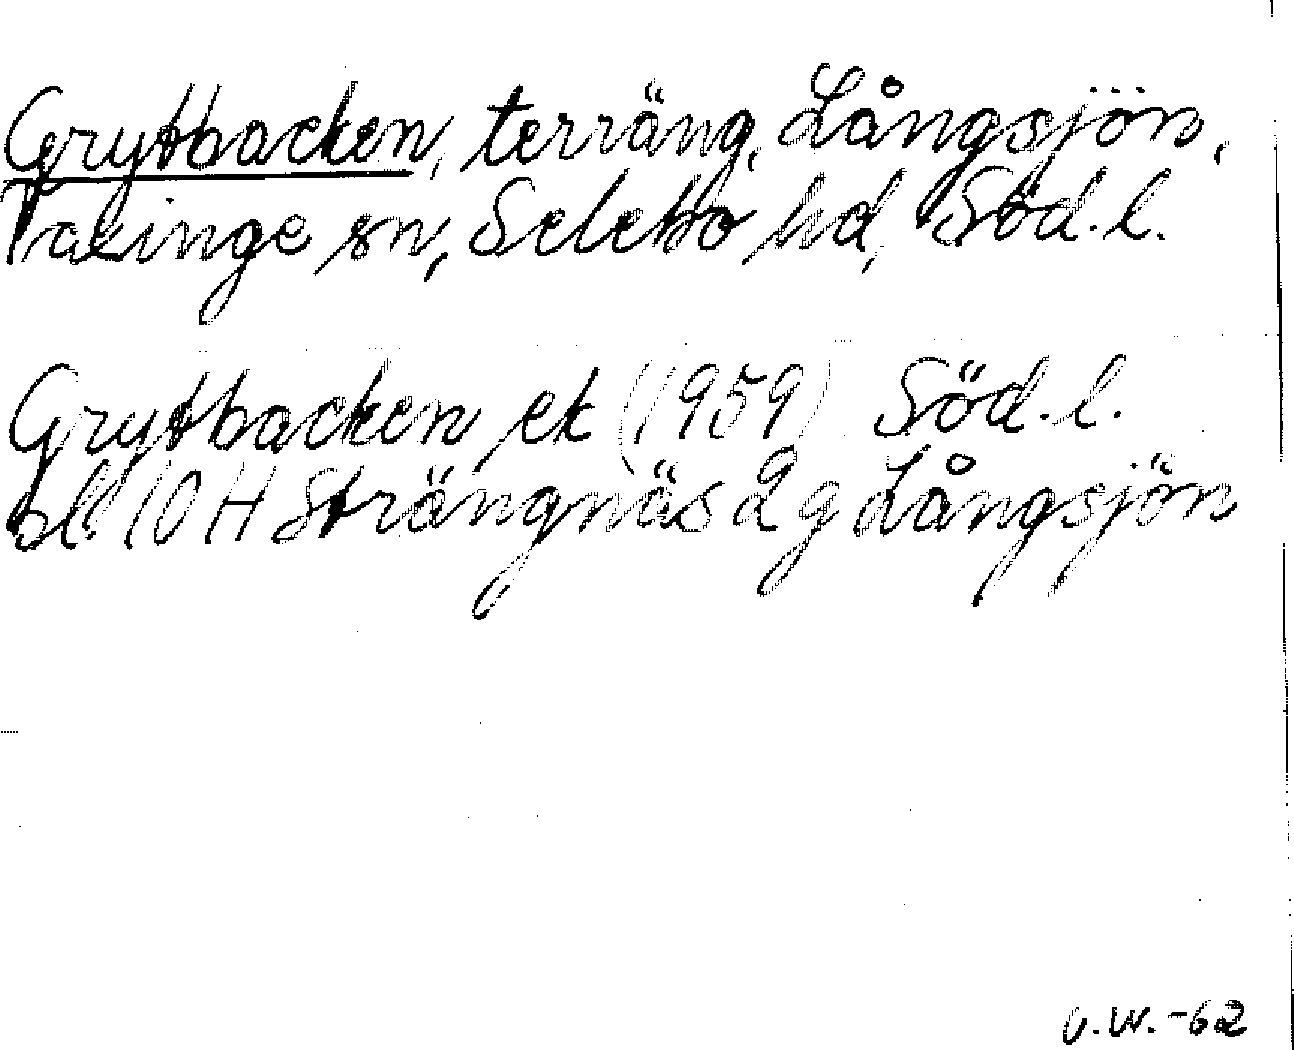 Grytbacken, terräng, Långsjön,
Taxinge sn, Selebo hd, Söd. l.
Grytbacken ek (1959) Söd. l.
bl. 10 H Strängnäs 2 g Långsjön
U.W. -62